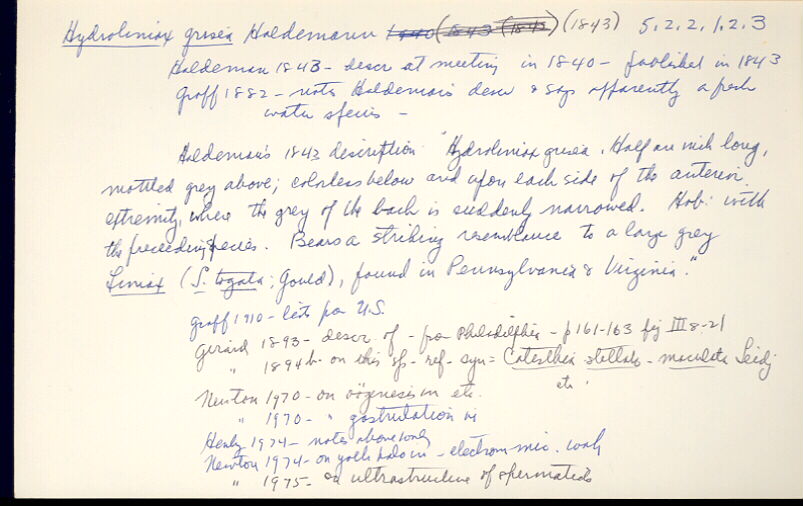 Hydrolimax grisea Haldemann 1840 (1843 (1843) (1843) 5.2.2.1.2.3
Haldeman 1843 - descr at meeting in 1840 - published in 1843
Graff 1882 - notes Haldeman's descr & says apparently a fresh
water species -
Haldeman's 1843 description "Hydrolimax grisea. Half an inch long,
mottled grey above; colorless below and upon each side of the anterior
extremity, where the grey of the back is suddenly narrowed. Hab: with
the preceeding species. Bears a striking resemblance to a large grey
Limax (S. togata; Gould), found in Pennsylvania & Virginia."
Graff 1910 - lists for U.S.
Girard 1893 - descr of - from Philadelphia - p 161-163 fig III 8-21
" 1894 b - on this sp - ref - syn = Catesthia stellato - maculata Leidy
etc
Newton 1970 - on oogenesis in etc.
" 1970 - " gastrulation in
Henley 1974 - notes above only
Newton 1974 - on yolk in - electron mic. work
" 1975 - on ultrastructure of spermatids